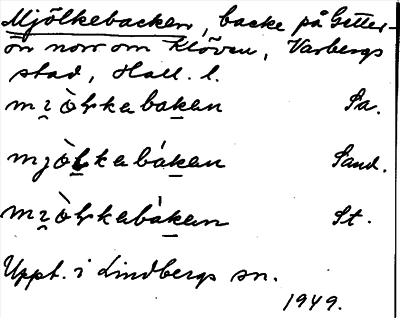 Mjölkebacken, backe på Getter-
ön norr om Klöven, Varbergs
stad, Hall. l.
mı̯ò̀ɫkabakan Sa.
mjò̀ɫkabákan Sand.
mı̯ò̀ɫkabàkan St.
Uppt. i Lindbergs sn.
1949.